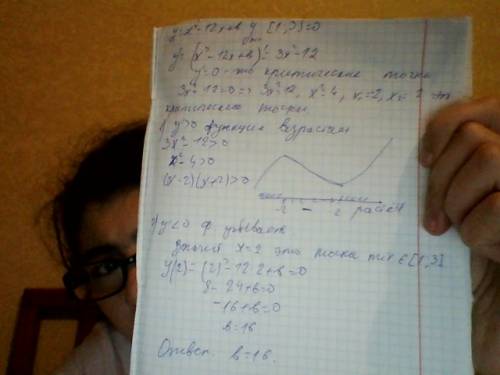 y=x³-12x+в y [1,3]=0
y'=(x³-12x+в)'=3x²-12
y'=0 - это критические точки
3x²-12=0 => 3x²=12, x²=4, x₁=-2, x₂=2 это
критические точки
1) y'>0 функция возрастает
3x²-12>0
x²-4>0
(x-2)(x+2)>0
-2 - 2
2) y'<0 ф. убывает
x=2 это точка min ∈[1,3]
y(2)=(2)³-12·2+в=0
8-24+в=0
-16+в=0
в=16
Ответ. в=16.